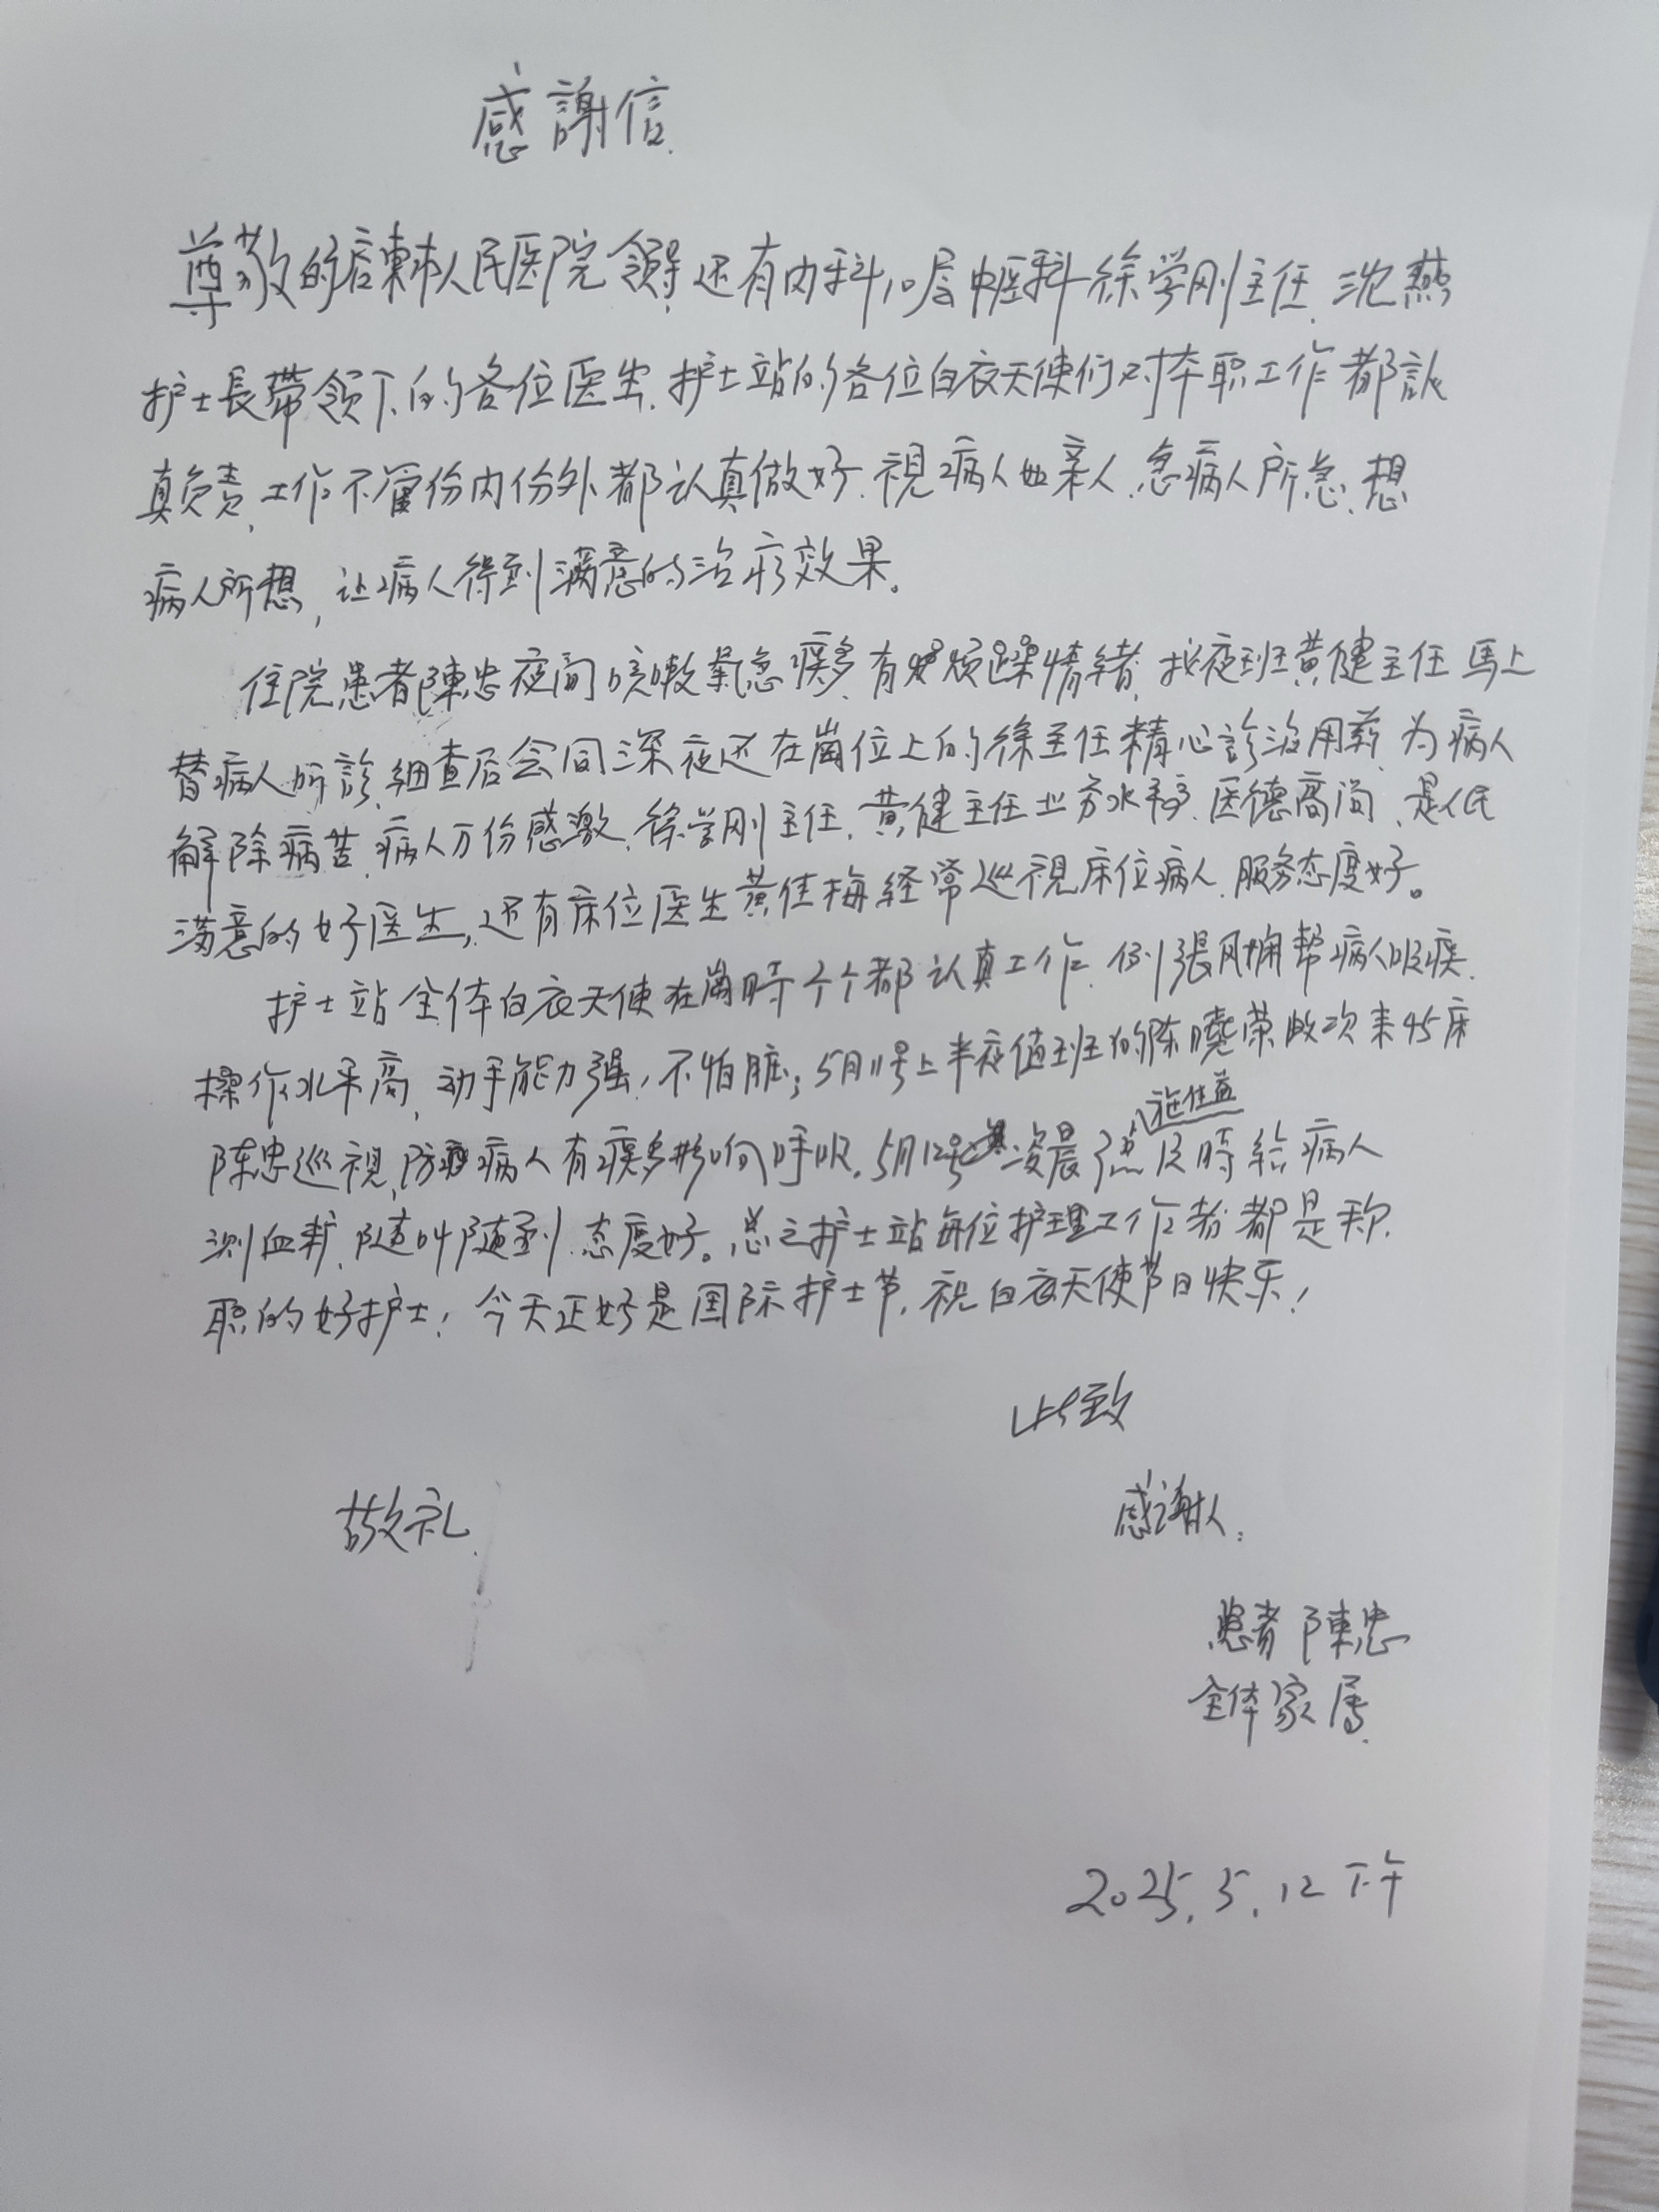 感謝信.
尊敬的启東市人民医院领导,还有内科10层中医科徐学刚主任.沈燕
护士長带领下的各位医生.护士站的各位白衣天使们对本职工作都認
真负责,工作不管份内份外都认真做好.視病人如亲人.急病人所急.想
病人所想,让病人得到满意的治疗效果。
住院患者陳忠夜间咳嗽氣急痰多.有烦躁情绪.找夜班黄健主任馬上
替病人听診.细查后会同深夜还在崗位上的徐主任精心診治用药.为病人
解除病苦.病人万份感激.徐学刚主任.黄健主任业务水平高.医德高尚.是人民
满意的好医生,还有床位医生黄佳梅经常巡視床位病人.服务态度好。
护士站全体白衣天使在崗時个个都认真工作.例張风娟帮病人吸痰.
操作水平高,动手能力强,不怕脏;5月11号上半夜值班的陈曉荣数次来45床
陈忠巡視,防病人有痰多影响呼吸.5月12号凌晨 及時给病人
施佳益
测血粓.随叫随到.态度好。总之护士站每位护理工作者都是称
职的好护士!今天正好是国际护士节,祝白衣天使节日快乐!
此致
敬礼.
感谢人:
患者陳忠
全体家属.
2025.5.12下午